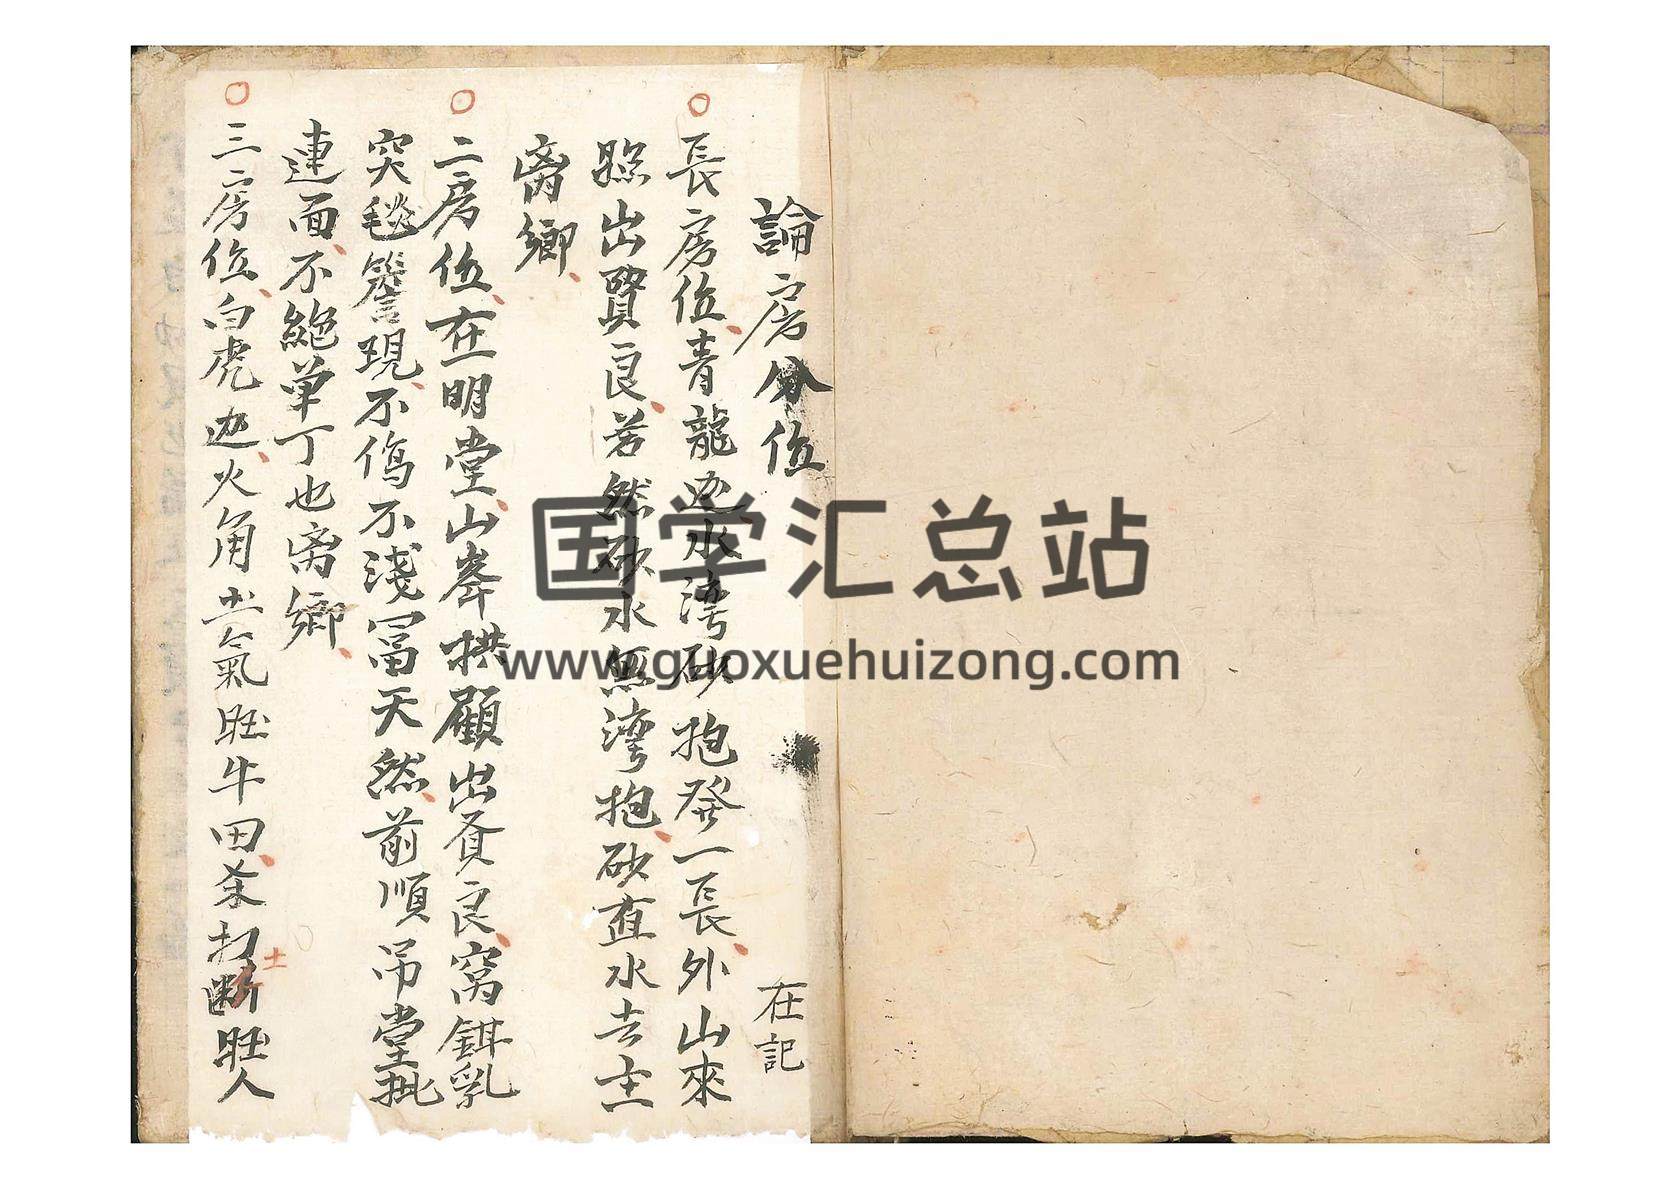 論房分位 在記
長房位青龍边水湾砂抱發一長外山來
照出賢良若然砂水無湾抱砂直水去主
离鄉
二房位在明堂山峯拱顧出賢良窩鉗乳
突毯簷現不傷不淺富天然前順吊堂批
連面不絶单丁也离鄉
三房位白虎边火角 氣旺牛田 打断旺人
土
国学汇总站
www.guoxuehuizong.com